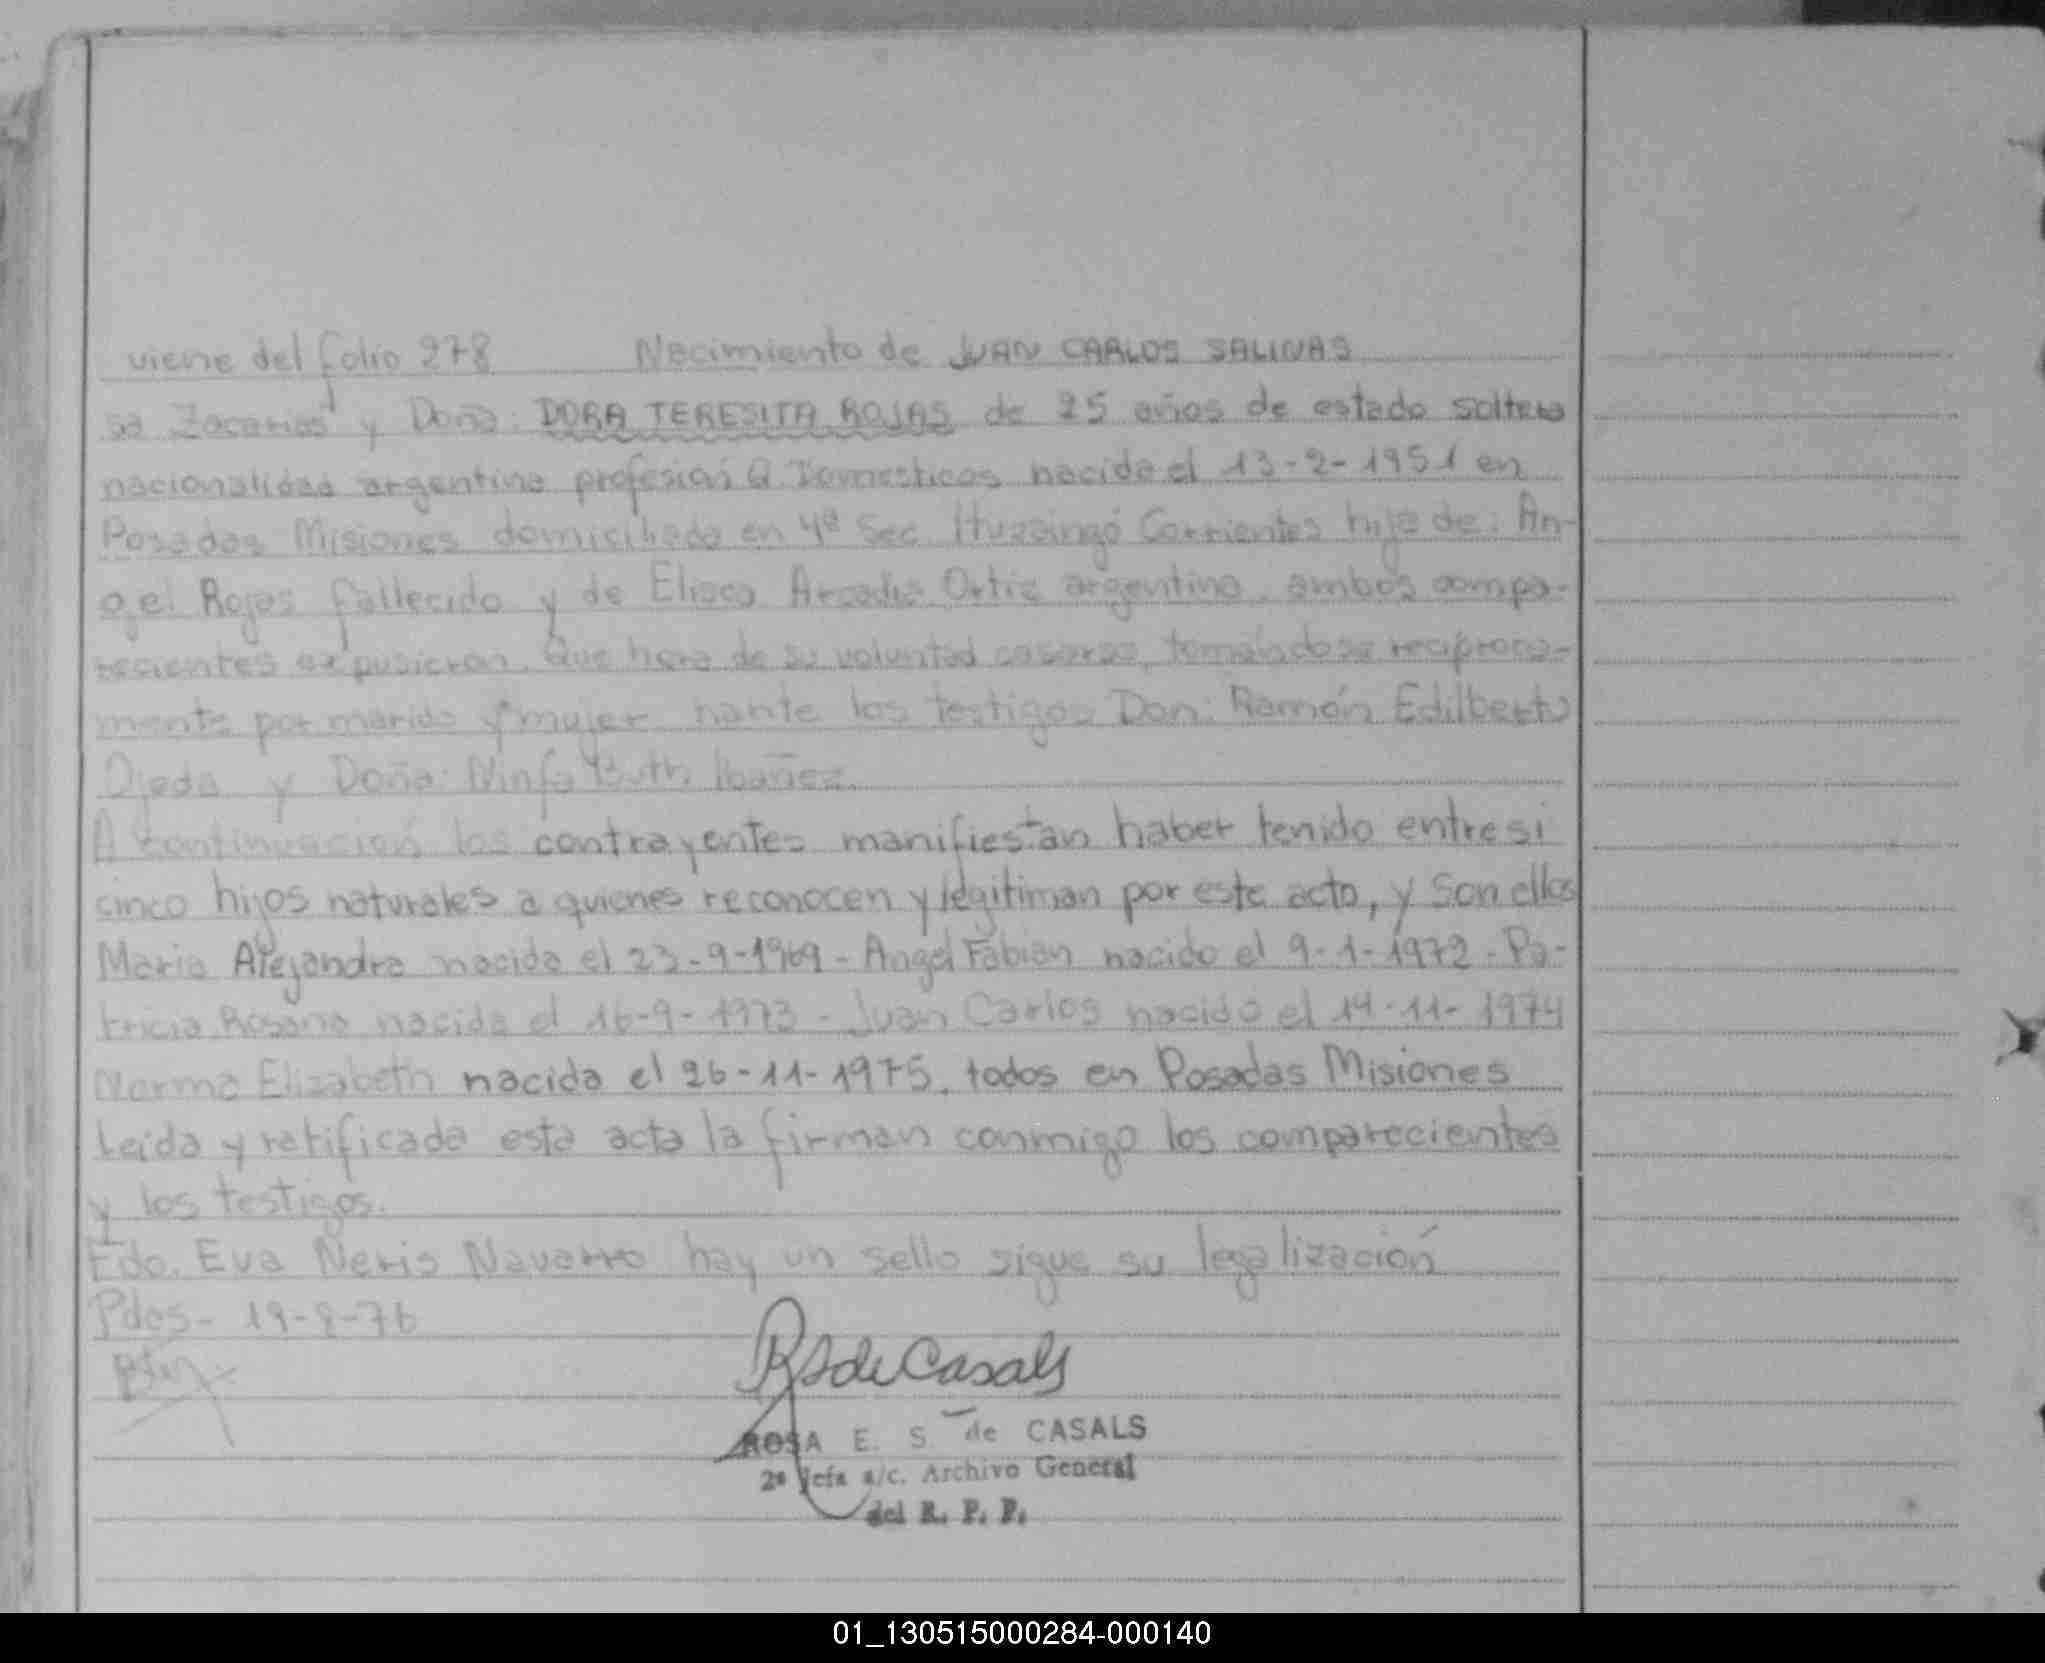 viene del folio 278 Nacimiento de JUAN CARLOS SALINAS
sa Zacarias y Doña: DORA TERESITA ROJAS de 25 años de estado soltera
nacionalidad argentina profesión Q. Domesticos nacida el 13-2-1951 en
Posadas Misiones domiciliada en 4ª Sec. Ituzaingó Corrientes hija de: An-
gel Rojas fallecido y de Elisea Arcadia Ortiz argentina. ambos compa-
recientes expusieron Que hera de su voluntad casarse, tomandose reciproca-
mente por marido y mujer hante los testigos Don: Ramón Edilberto
Ojeda y Doña: Ninfa Ruth Ibañez.
A continuación los contrayentes manifiestan haber tenido entre si
cinco hijos naturales a quienes reconocen y legitiman por este acto, y son ellos
Maria Alejandra nacida el 23-9-1969 - Angel Fabian nacido el 9-1-1972 - Pa-
tricia Rosana nacida el 16-9-1973 - Juan Carlos nacido el 14-11-1974
Norma Elizabeth nacida el 26-11-1975, todos en Posadas Misiones
Leida y ratificada esta acta la firman conmigo los comparecientes
y los testigos.
Fdo. Eva Neris Navarro hay un sello sigue su legalización
Pdas- 19-8-76
RSdeCasals
ROSA E. S. de CASALS
2ª Jefa a/c. Archivo General
del R. P. P.
01_130515000284-000140